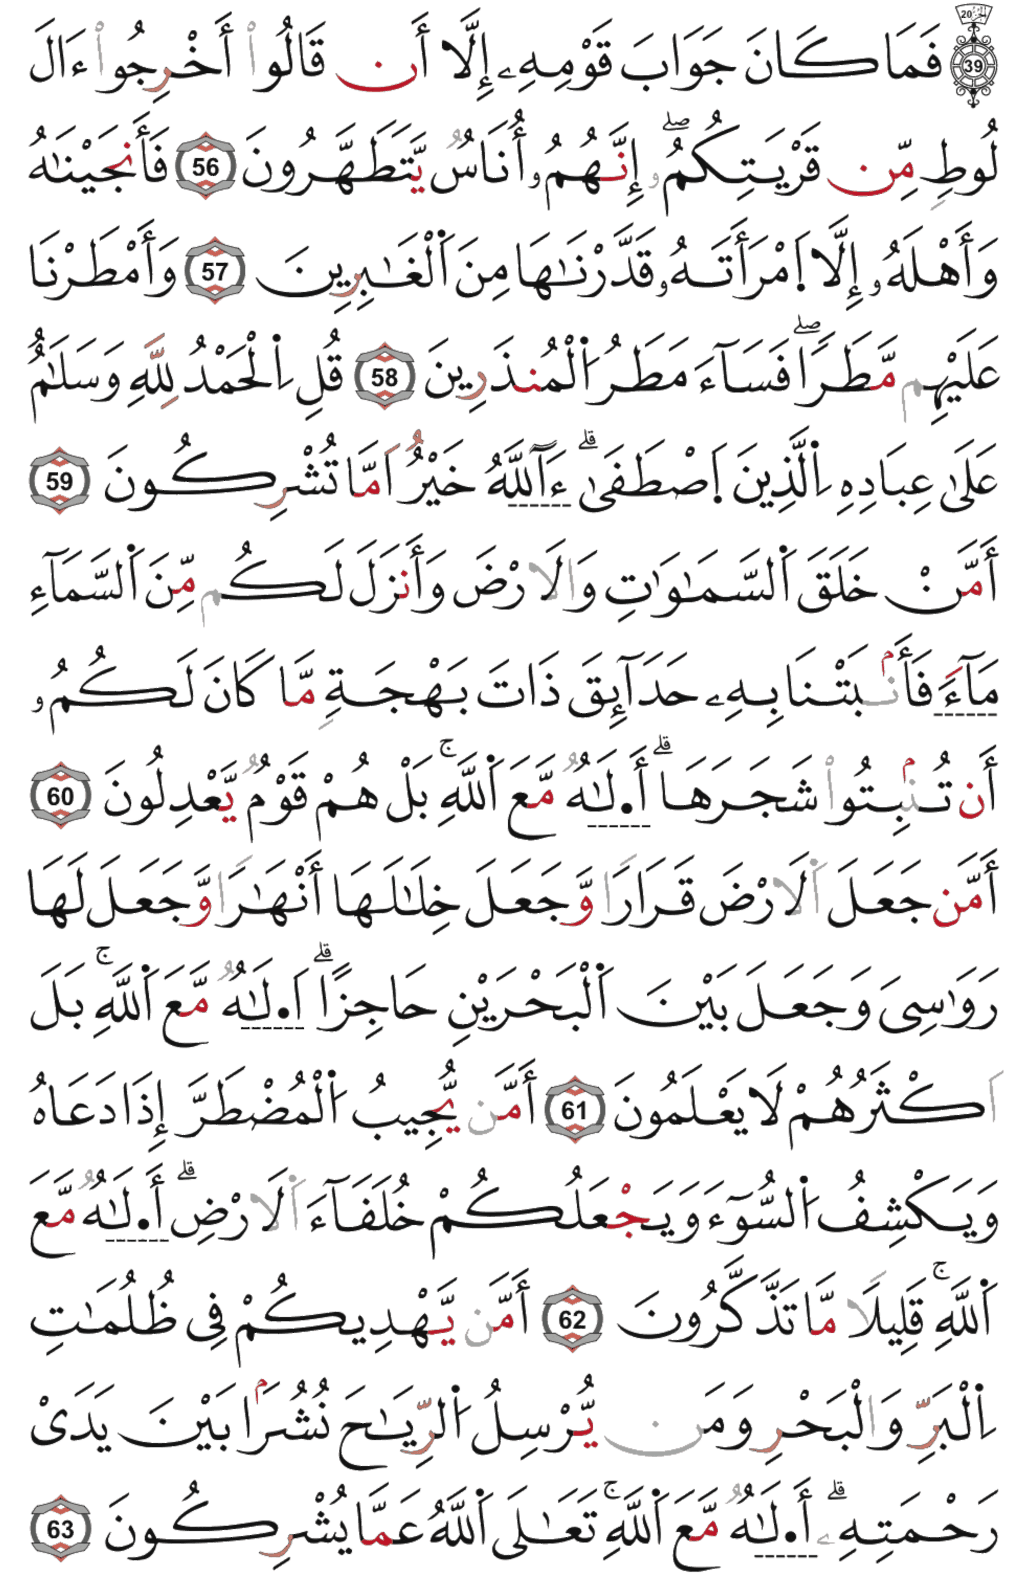 39 الجزء 20 فَمَا كَانَ جَوَابَ قَوْمِهِۦ إِلَّا أَن قَالُوا۟ أَخْرِجُوا۟ ءَالَ
لُوطٍ مِّن قَرْيَتِكُمُۥ ۖ إِنَّهُمُۥ أُنَاسٌ يَّتَطَهَّرُونَ 56 فَأَنجَيْنَٰهُ
وَأَهْلَهُۥ إِلَّا اَ۪مْرَأَتَهُۥ قَدَّرْنَٰهَا مِنَ اَ۬لْغَٰبِرِينَ 57 وَأَمْطَرْنَا
عَلَيْهِم مَّطَرًا ۖ فَسَآءَ مَطَرُ اُ۬لْمُنذَرِينَ 58 قُلِ اِ۬لْحَمْدُ لِلَّهِ وَسَلَٰمٌ
عَلَىٰ عِبَادِهِ اِ۬لَّذِينَ اَ۪صْطَفَىٰٓ ۗ ءَآللَّهُ خَيْرٌ اَمَّا تُشْرِكُونَ 59
أَمَّنْ خَلَقَ اَ۬لسَّمَٰوَٰتِ وَالَارْضَ وَأَنزَلَ لَكُم مِّنَ اَ۬لسَّمَآءِ
مَآءً فَأَنۢبَتْنَا بِهِۦ حَدَآئِقَ ذَاتَ بَهْجَةٍ مَّا كَانَ لَكُمُۥ
أَن تُنۢبِتُوا۟ شَجَرَهَا ۗ أَ•لَٰهٌ مَّعَ اَ۬للَّهِ ۚ بَلْ هُمْ قَوْمٌ يَّعْدِلُونَ 60
أَمَّن جَعَلَ اَ۬لَارْضَ قَرَارًا وَّجَعَلَ خِلَٰلَهَا أَنْهَٰرًا وَّجَعَلَ لَهَا
رَوَٰسِىَ وَجَعَلَ بَيْنَ اَ۬لْبَحْرَيْنِ حَاجِزًا ۗ اَ•لَٰهٌ مَّعَ اَ۬للَّهِ ۚ بَلَ
اَكْثَرُهُمْ لَا يَعْلَمُونَ 61 أَمَّن يُّجِيبُ اُ۬لْمُضْطَرَّ إِذَا دَعَاهُ
وَيَكْشِفُ اُ۬لسُّوٓءَ وَيَجْعَلُكُمْ خُلَفَآءَ اَ۬لَارْضِ ۗ أَ•لَٰهٌ مَّعَ
اَ۬للَّهِ ۚ قَلِيلًا مَّا تَذَّكَّرُونَ 62 أَمَّن يَّهْدِيكُمْ فِى ظُلُمَٰتِ
اِ۬لْبَرِّ وَالْبَحْرِ وَمَن يُّرْسِلُ اُ۬لرِّيَٰحَ نُشُرَۢا بَيْنَ يَدَىْ
رَحْمَتِهِۦ ۗ أَ•لَٰهٌ مَّعَ اَ۬للَّهِ ۚ تَعَٰلَى اَ۬للَّهُ عَمَّا يُشْرِكُونَ 63